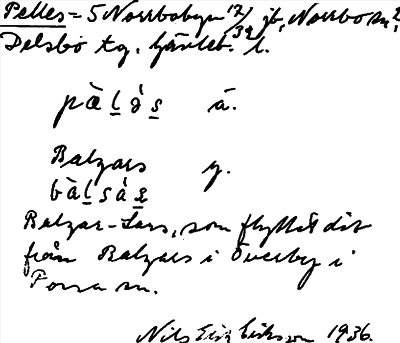 Pelles = 5 Norrbobyn 12/32 jb, Norrbo sn,
Delsbo tg. Gävleb. l.
pὰl̲ə̀s̲ ä.
Balzars y.
bàl̲sàs̲
Balzar-Lars, som flyttat dit
från Balzars i Överby i
Forsa sn.
Nils Erik Eriksson 1936.